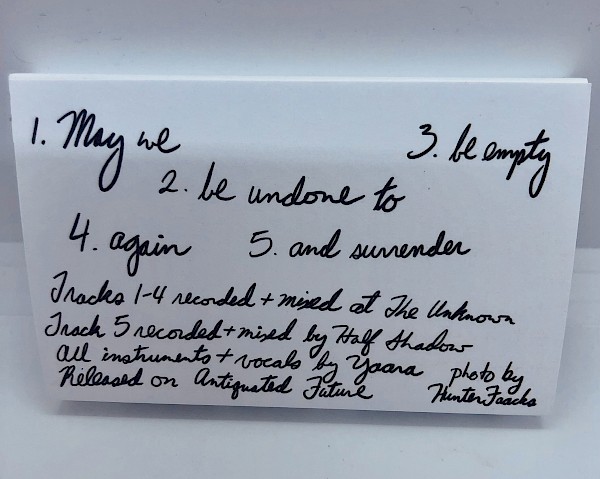 1. May we
3. be empty
2. be undone to
4. again
5. and surrender
Tracks 1-4 recorded + mixed at The Unknown
Track 5 recorded + mixed by Half Shadow
all instruments + vocals by Ypara
Released on Antiquated Future
photo by
Hunter Faacks